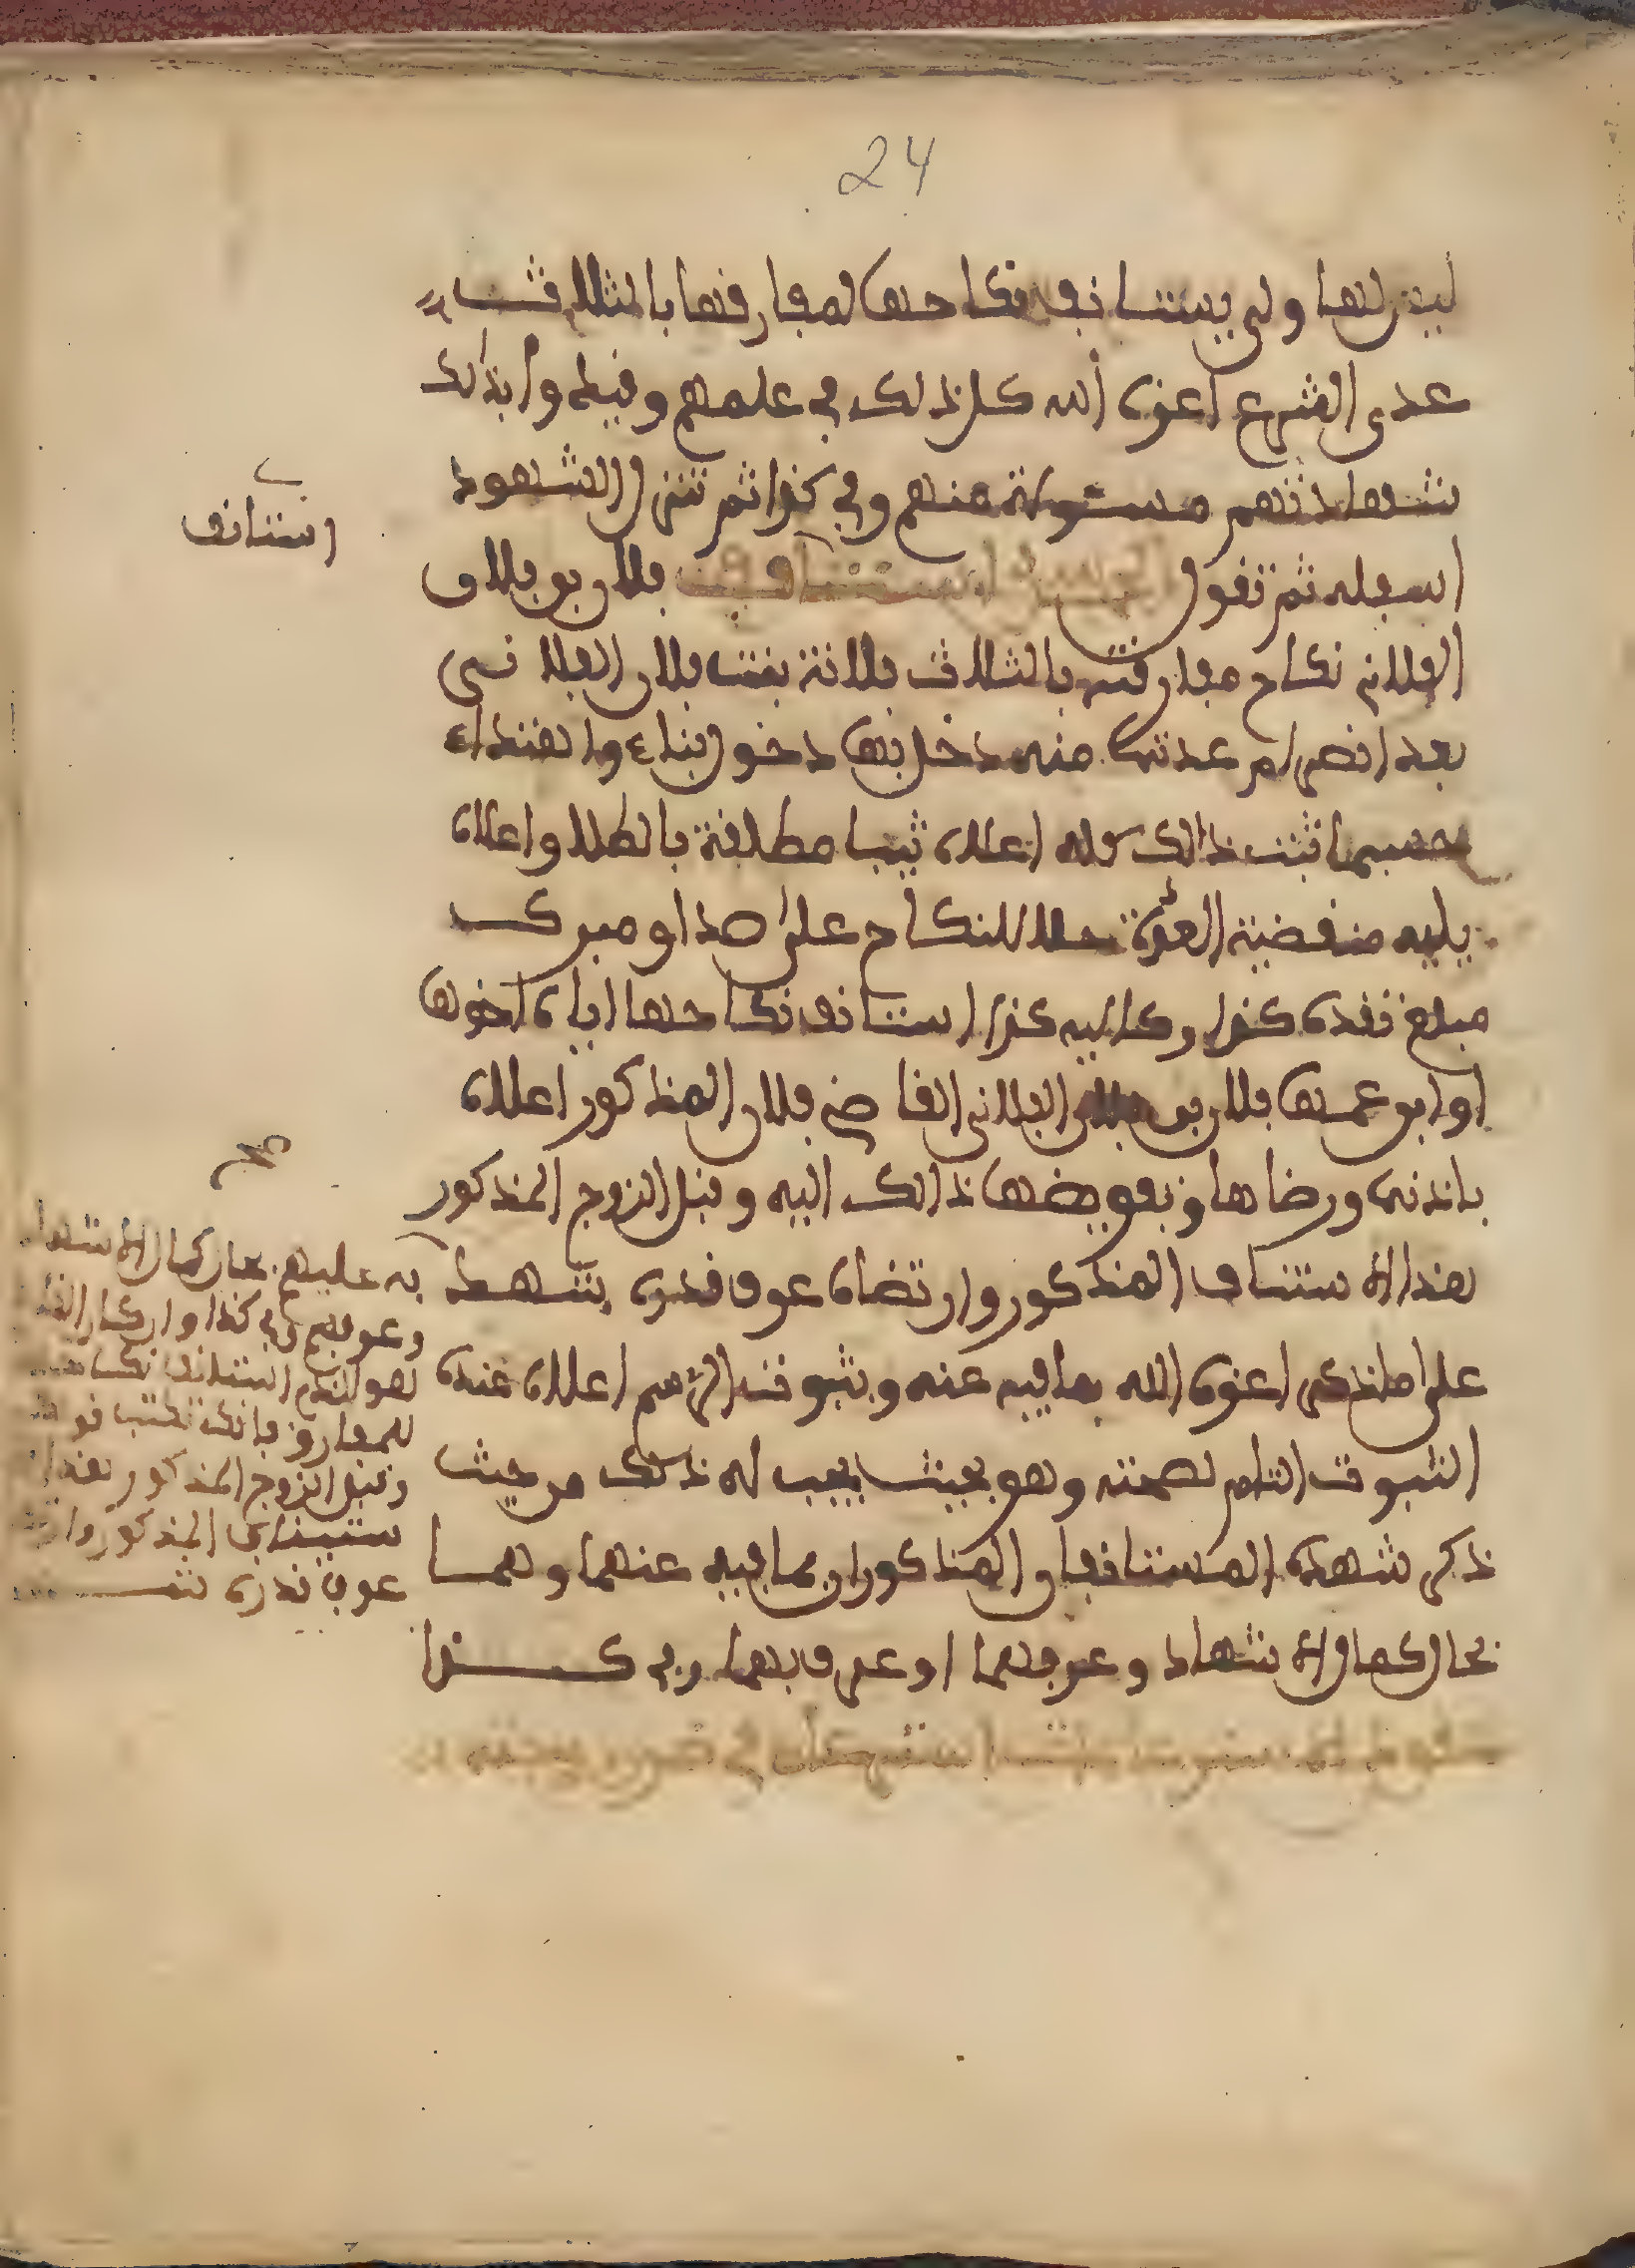 24
ليس لها ولي يستانف نكاحها لمفارقها بالثلاث
عدى الشرع اعزه الله كل ذلك في علمهم وقيدوا بذلك
شهادتهم مسئولة منهم وفي كذا ثم تنزل الشهود
استانف
اسفله ثم تقول استانف فلان بن فلان
الفلاني نكاح مفارقته بالثلاث فلانة بنت فلان الفلاني
بعد انصرام عدتها منه دخل بها دخول بناء واهتداء
حسبما ثبت ذالك كله اعلاه ثيبا مطلقة بالطلاق اعلاه
يليه منقضية العدة حلا للنكاح على صداق مبرك
مبلغ نقده كذا وكاليه كذا استانف نكاحها اياه اخوها
او ابن عمها فلان بن فلان الفلاني القاضي فلان المذكور اعلاه
باذنها ورضاها وتفويضها ذالك اليه وقبل الزوج المذكور
هذا الاستناف المذكور وارتضاه عرف قدره شهد
على ما ذكر اعزه الله بما فيه عنه وثبوت الرسم اعلاه عنده
الثبوت التام لصحته وهو بحيث يجب له ذلك من حيث
ذكر شهد المستانفان المذكوران بما فيه عنهما وهما
بحال كمال الاشهاد وعرفهما او عرف بهما وفي كذا
به عليهم بحال كمال الاشهاد
وعرفهم وفي كذا وان كان
هو الذي استانف نكاحه
للمفارق فانك تكتب قولك
وقبل الزوج المذكور هذا
ستيناف المذكور وار
عرف قدره شهد